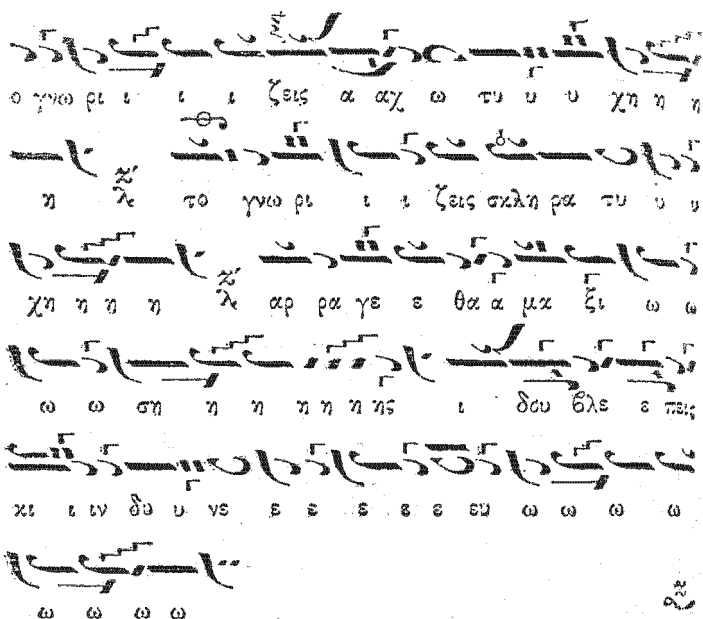 ο γνω ρι ι ι ι ζεις α αχ ω τυ υ υ χη η η
η το γνω ρι ι ι ζεις σκλη ρα τυ υ υ
χη η η η αρ ρα γε ε θα α μα ξι ω ω
ω ω ση η η η η η ης ι δου βλε ε πεις
κι ι ιν δυ υ νε ε ε ε ε ε ευ ω ω ω ω
ω ω ω ω